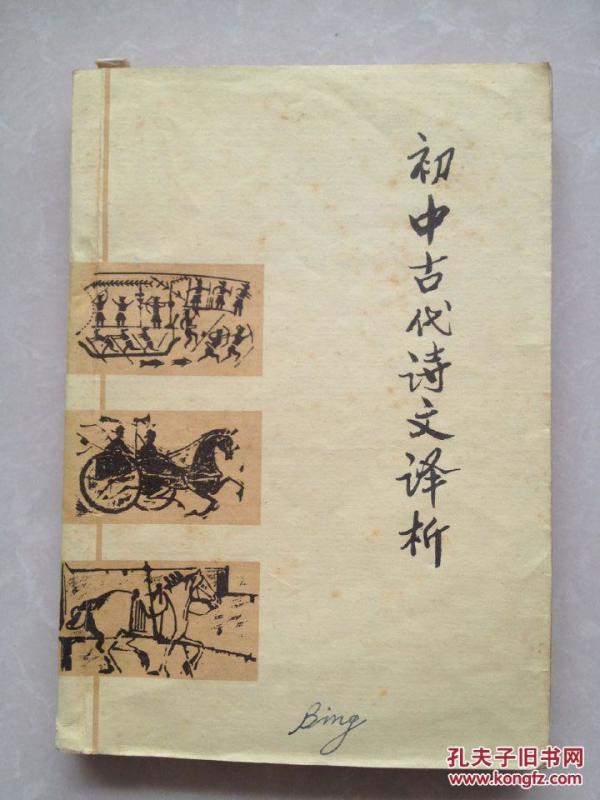 初中古代诗文译析
Bing
孔夫子旧书网
www.kongfz.com